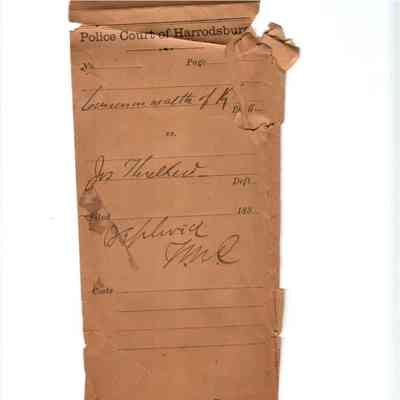 Police Court of Harrodsbur
No. Page
Commonwealth of Ky Pltff.
vs.
Jas Threlkeld Deft.
Filed 188
Costs